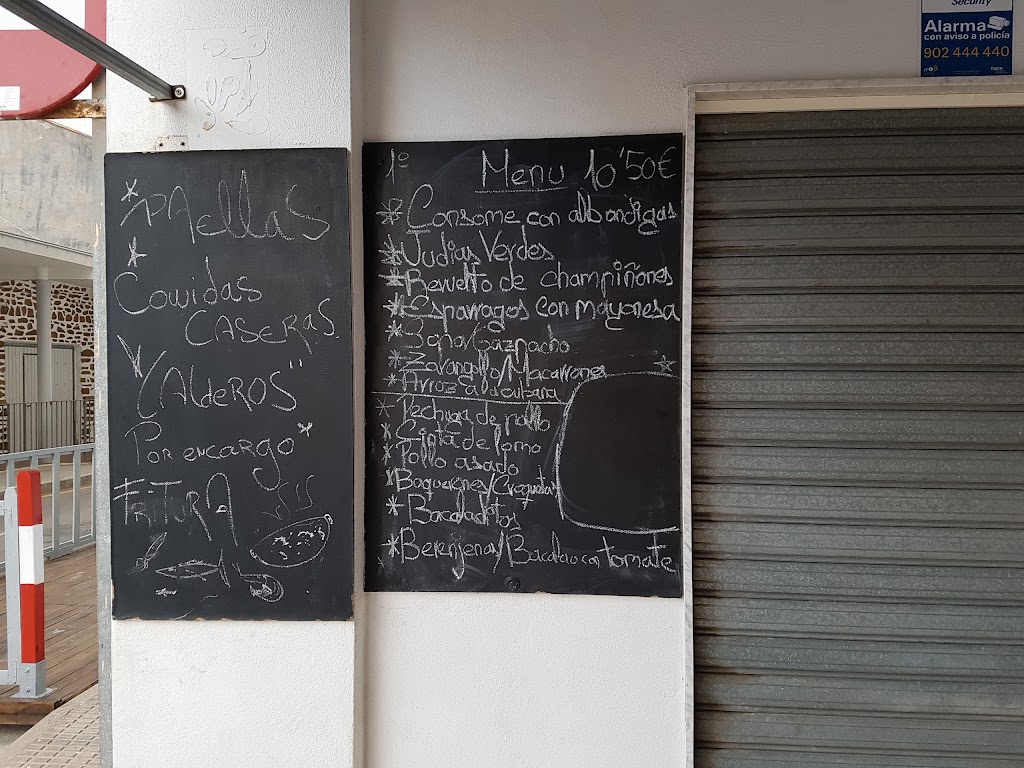 * PAellas
*
Comidas
CASERAS
"CAldeROS"
Por encargo*
FRITURA
1º Menu 10'50€
* Consome con albondigas
* Judias Verdes
* Revuelto de champiñones
* Esparragos con mayonesa
* Sopa/Gazpacho
* Zarangollo/Macarrones
* Arroz a la cubana
* Pechuga de pollo
* Cinta de lomo
* Pollo asado
* Boquerones/Croquetas
* Bacaladitos
* Berenjenas/Bacalao con tomate
Security
Alarma
con aviso a policía
902 444 440